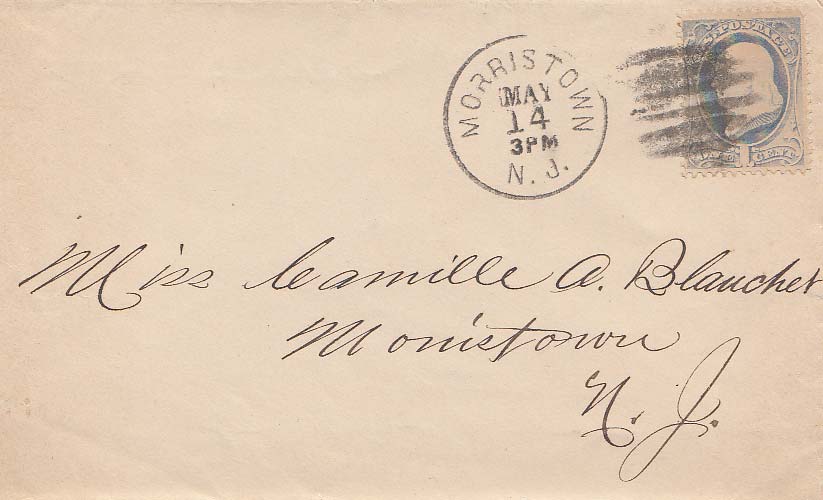 U.S. POSTAGE
MORRISTOWN
MAY
14
3PM
N. J.
ONE 1 CENT
Miss Camille A. Blanchet
Morristown
N. J.